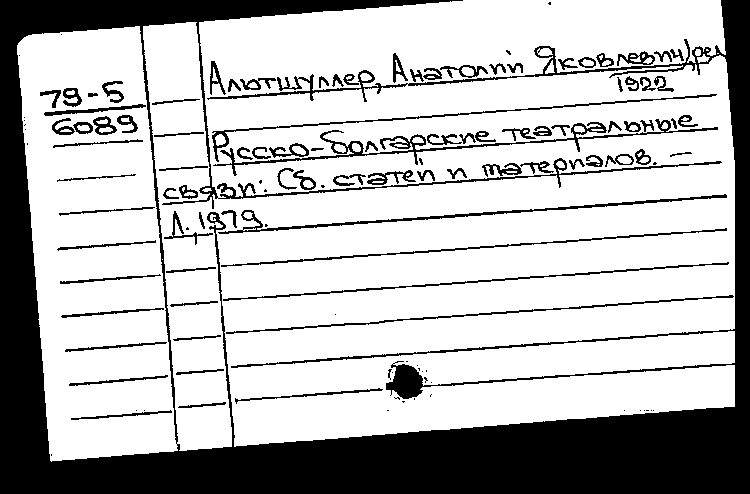 79-5
6089
Альтшуллер, Анатолий Яковлевич, ред
1922
Русско-болгарские театральные
связи: Сб. статей и материалов. —
Л., 1979.